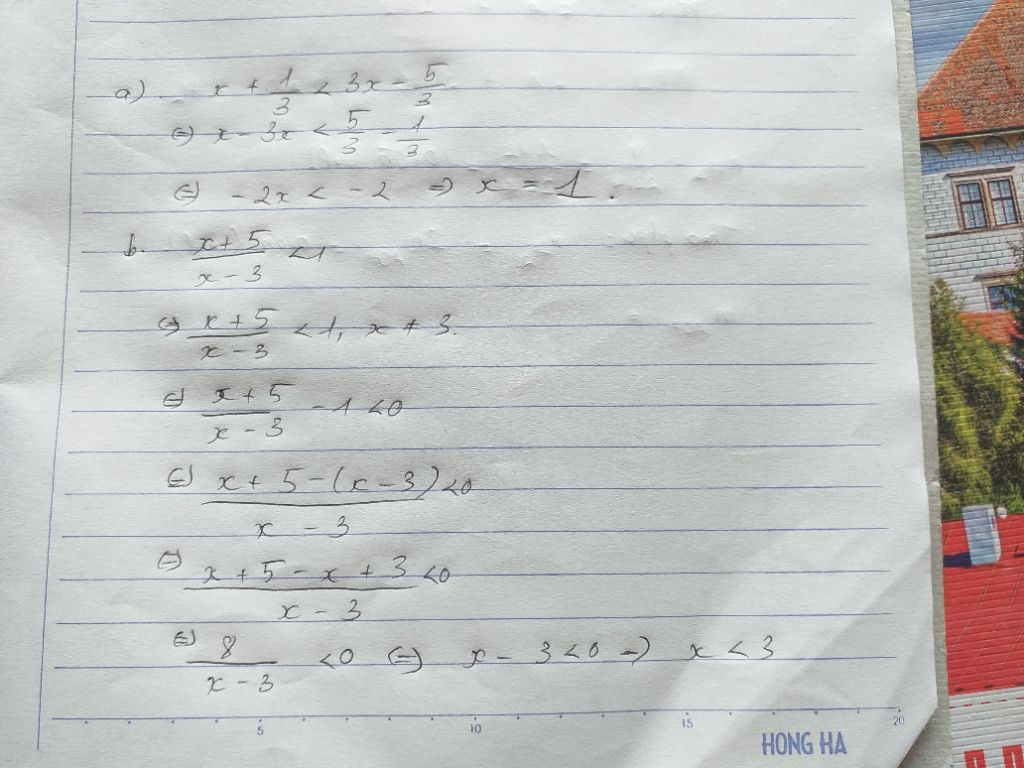 a) x + 1/3 < 3x - 5/3
⇔ x - 3x < 5/3 - 1/3
⇔ -2x < -2 ⇒ x = 1.
b. (x+5)/(x-3) < 1
⇔ (x+5)/(x-3) < 1, x ≠ 3.
⇔ (x+5)/(x-3) - 1 < 0
⇔ (x+5-(x-3))/(x-3) < 0
⇔ (x+5-x+3)/(x-3) < 0
⇔ 8/(x-3) < 0 ⇔ x - 3 < 0 → x < 3
5 10 15 20
HONG HA